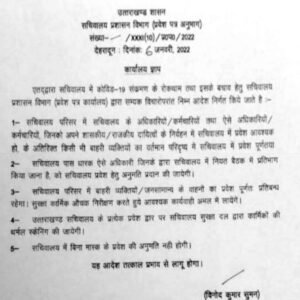 उत्तराखण्ड शासन
सचिवालय प्रशासन विभाग (प्रवेश पत्र अनुभाग)
संख्या- /XXXI(10)/ /2022
देहरादून : दिनांक: 6 जनवरी, 2022
कार्यालय ज्ञाप
एतद्द्वारा सचिवालय में कोविड-19 संक्रमण के रोकथाम तथा इसके बचाव हेतु सचिवालय
प्रशासन विभाग (प्रवेश पत्र कार्यालय) द्वारा सम्यक विचारोपरांत निम्न आदेश निर्गत किये जाते है :-
1- सचिवालय परिसर में सचिवालय के अधिकारियों/कर्मचारियों तथा ऐसे अधिकारियों/
कर्मचारियों, जिनको अपने शासकीय/राजकीय दायित्वों के निर्वहन में सचिवालय में प्रवेश आवश्यक
हो, के अतिरिक्त किसी भी बाहरी व्यक्तियों का वर्तमान परिदृश्य में सचिवालय में प्रवेश पूर्णतः
2- सचिवालय पास धारक ऐसे अधिकारी जिनके द्वारा सचिवालय में नियत बैठक में प्रतिभाग
किया जाना है, को सचिवालय प्रवेश हेतु अनुमति प्रदान की जायेगी।
3- सचिवालय परिसर में बाहरी व्यक्तियों/जनसामान्य के वाहनों का प्रवेश पूर्णतः प्रतिबन्ध
रहेगा। सुरक्षा कार्मिक औचक निरीक्षण करते हुये आवश्यक कार्यवाही अमल में लायेंगे।
4- उत्तराखण्ड सचिवालय के प्रत्येक प्रवेश द्वार पर सचिवालय सुरक्षा दल द्वारा कार्मिकों की
थर्मल स्कैनिंग की जायेगी।
5- सचिवालय में बिना मास्क के प्रवेश की अनुमति नही होगी।
यह आदेश तत्काल प्रभाव से लागू होगा।
(विनोद कुमार सुमन)